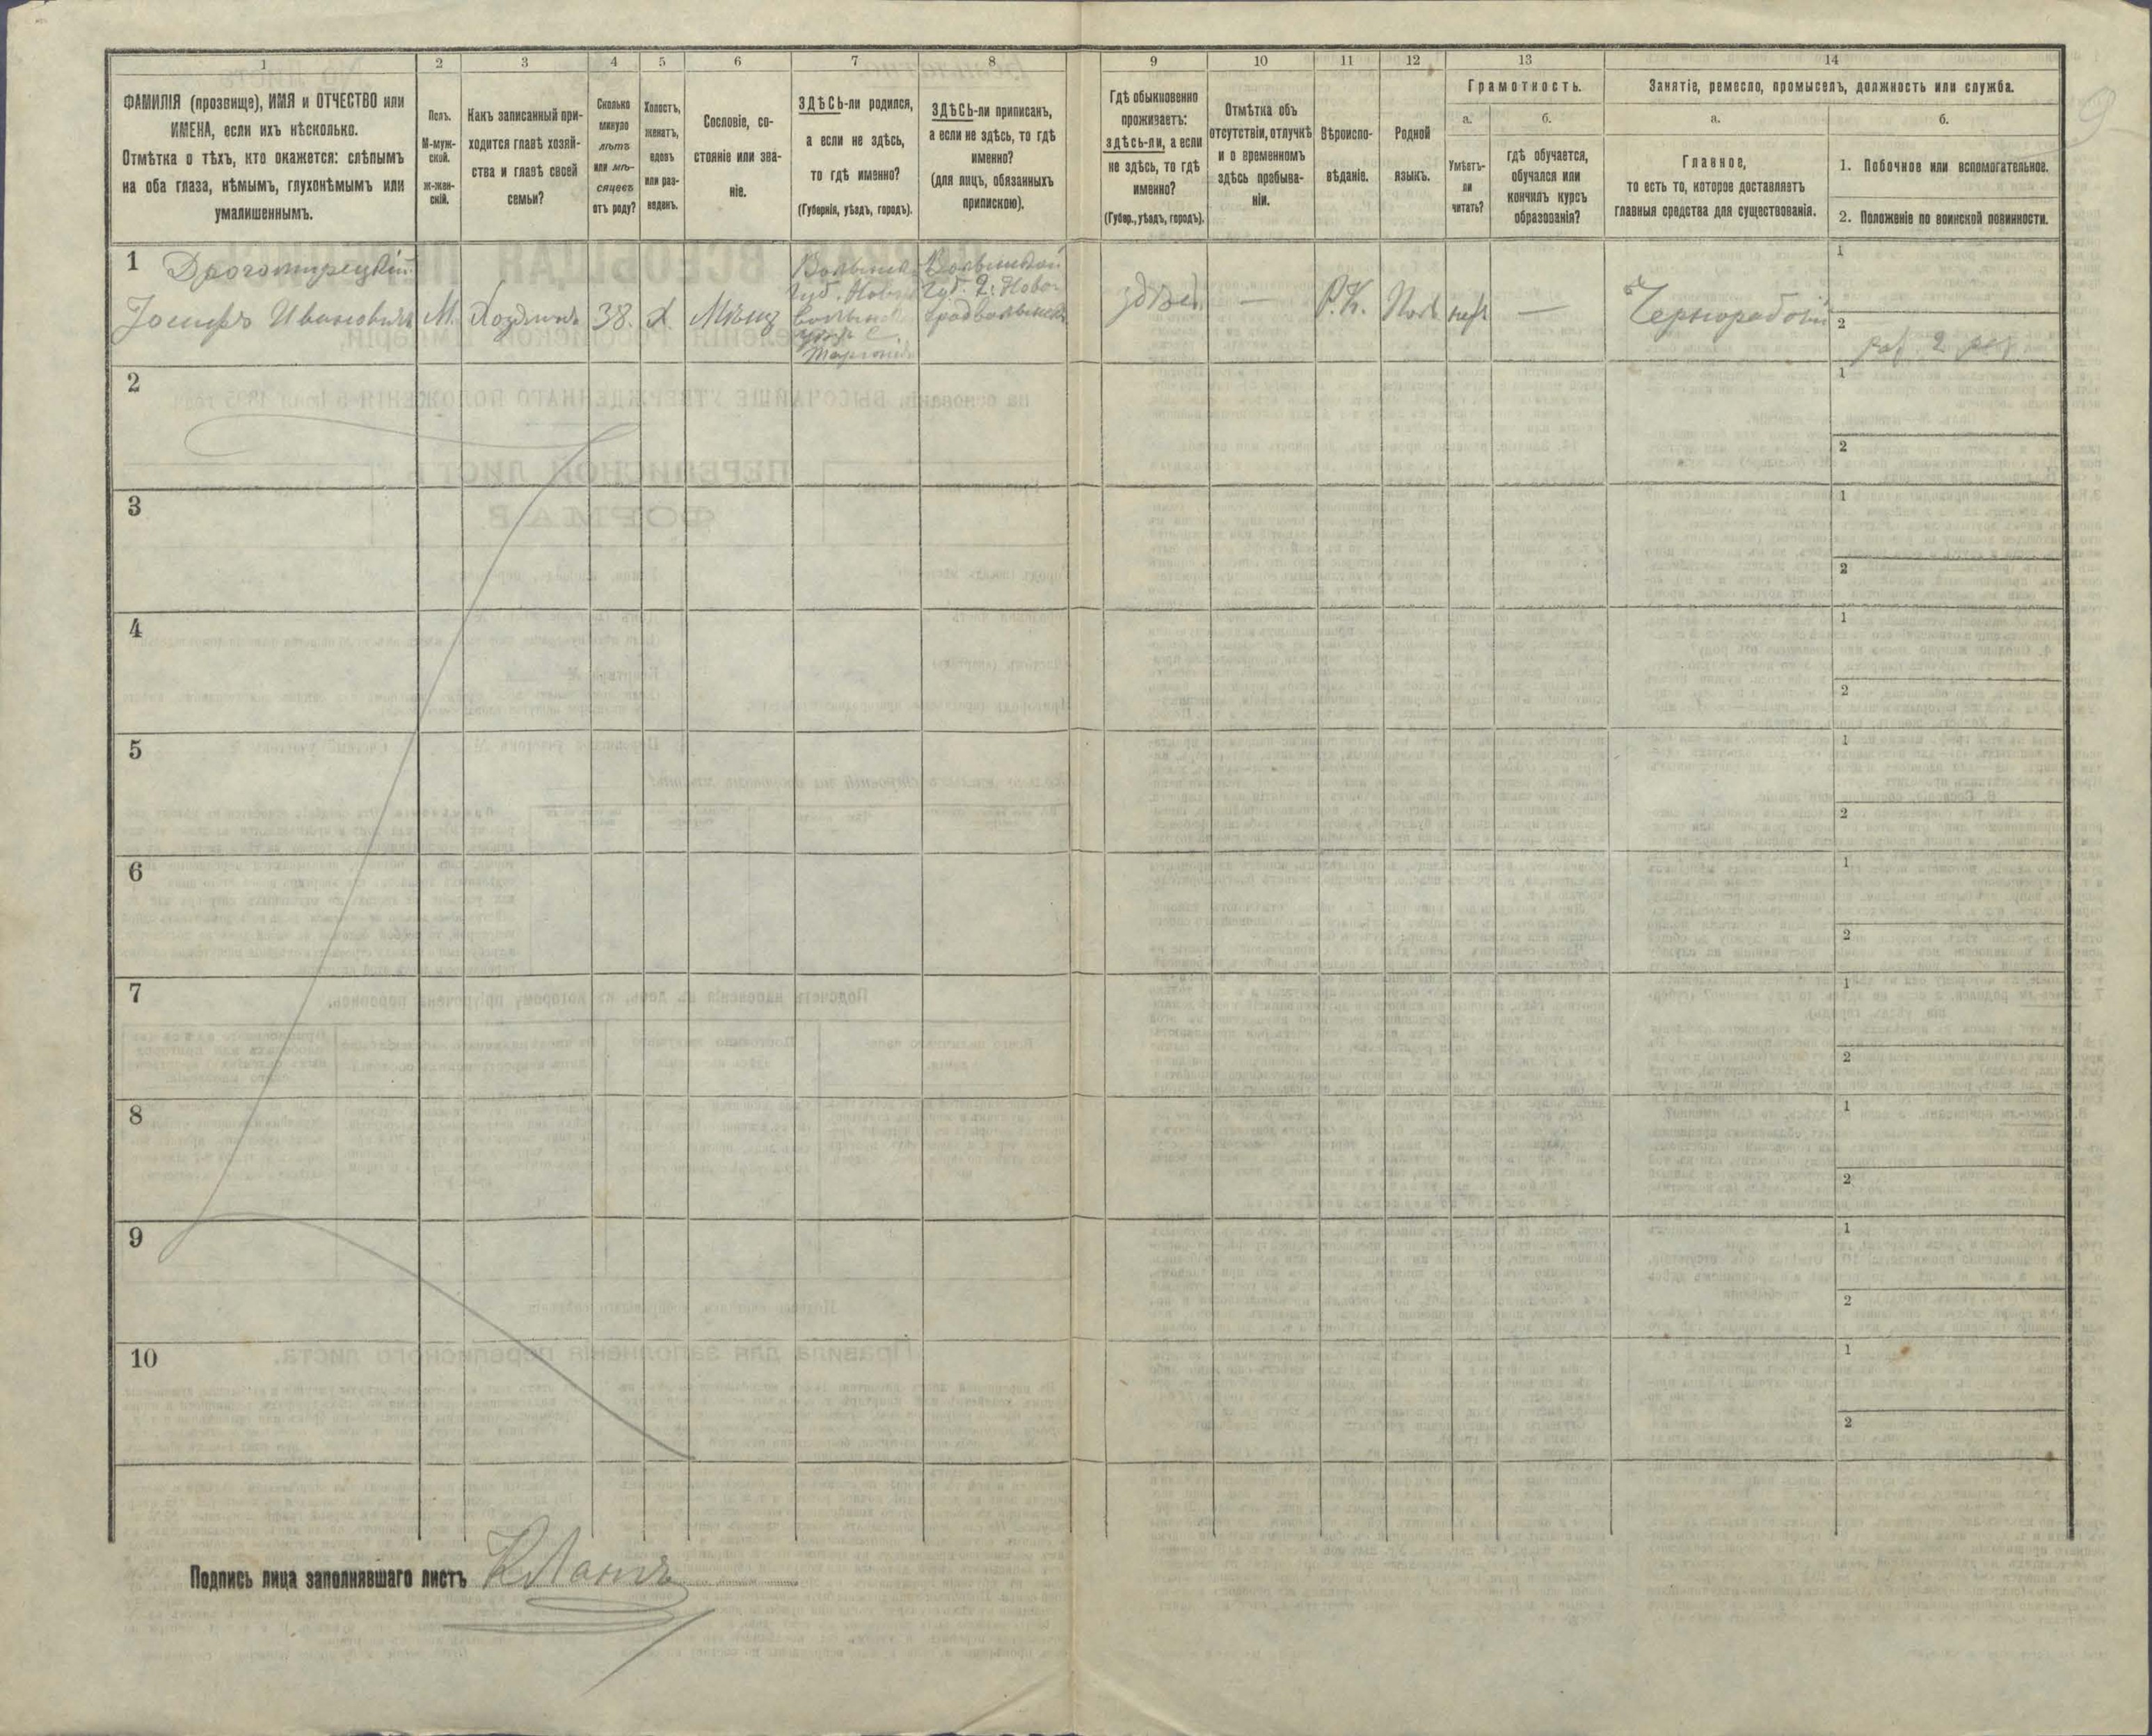 1
ФАМИЛІЯ (прозвище), ИМЯ и ОТЧЕСТВО или
ИМЕНА, если ихъ нѣсколько.
Отмѣтка о тѣхъ, кто окажется: слѣпымъ
на оба глаза, нѣмымъ, глухонѣмымъ или
умалишеннымъ.
2
Полъ.
М-муж-
ской.
ж-жен-
скій.
3
Какъ записанный при-
ходится главѣ хозяй-
ства и главѣ своей
семьи?
4
Сколько
минуло
лѣтъ
или мѣ-
сяцевъ
отъ роду?
5
Холостъ,
женатъ,
вдовъ
или раз-
веденъ.
6
Сословіе, со-
стояніе или зва-
ніе.
7
ЗДѢСЬ-ли родился,
а если не здѣсь,
то гдѣ именно?
(Губернія, уѣздъ, городъ).
8
ЗДѢСЬ-ли приписанъ,
а если не здѣсь, то гдѣ
именно?
(для лицъ, обязанныхъ
припискою).
9
Гдѣ обыкновенно
проживаетъ:
здѣсь-ли, а если
не здѣсь, то гдѣ
именно?
(Губер., уѣздъ, городъ).
10
Отмѣтка объ
отсутствіи, отлучкѣ
и о временномъ
здѣсь пребыва-
ніи.
11
Вѣроиспо-
вѣданіе.
12
Родной
языкъ.
13
Грамотность.
а.
Умѣетъ-
ли
читать?
б.
гдѣ обучается,
обучался или
кончилъ курсъ
образованія?
14
Занятіе, ремесло, промыселъ, должность или служба.
а.
Главное,
то есть то, которое доставляетъ
главныя средства для существованія.
б.
1. Побочное или вспомогательное.
2. Положеніе по воинской повинности.
9
1 Дрогомирецкій
Іосифъ Ивановичъ
М.
Хозяинъ
38.
Х.
Мѣщ
Волынск
Губ. Новг
волынск
уѣзд с.
Волынской
Губ. г. Ново-
градволынска
здѣсь
—
Р.К.
Поль
нетъ
—
Чернорабочій
1
2
2
1
2
3
1
2
4
1
2
5
1
2
6
1
2
7
1
2
8
1
2
9
1
2
10
1
2
Подпись лица заполнявшаго листъ